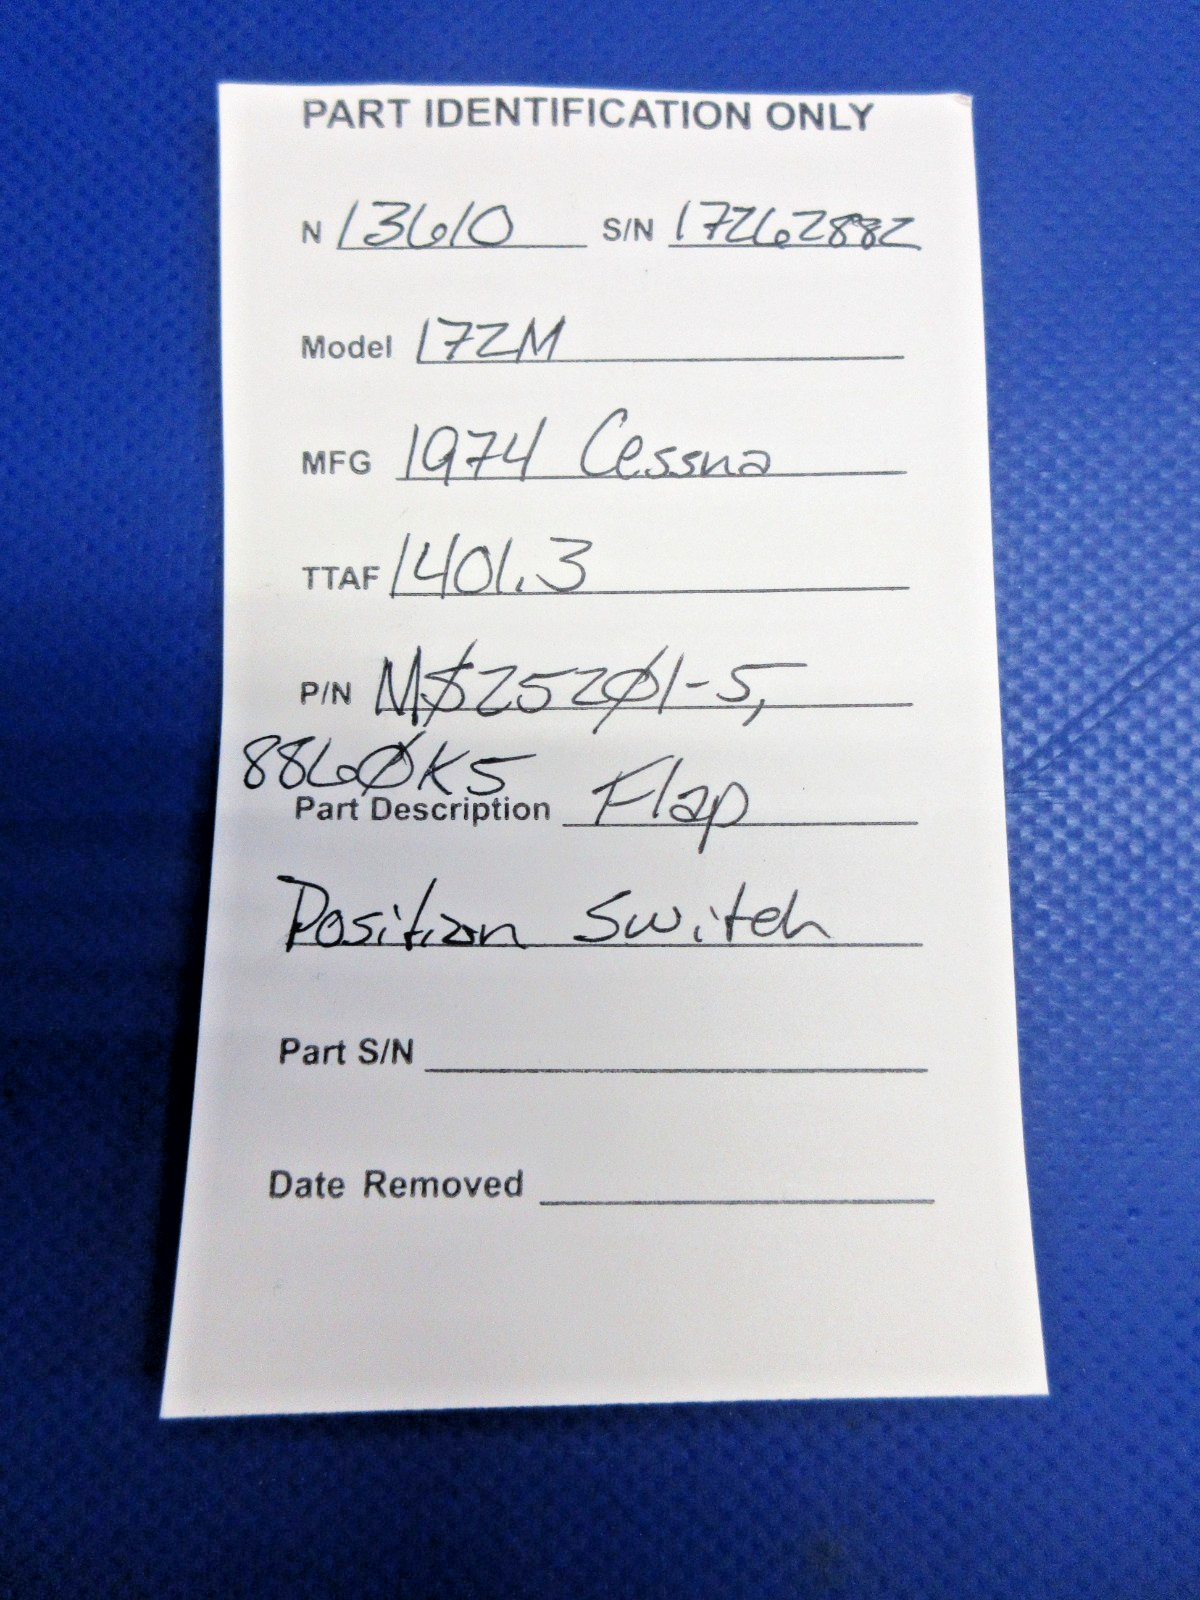 PART IDENTIFICATION ONLY
N 13610 S/N 17262882
Model 172M
MFG 1974 Cessna
TTAF 1401.3
P/N MS25201-5,
8860K5
Part Description Flap
Position Switch
Part S/N
Date Removed